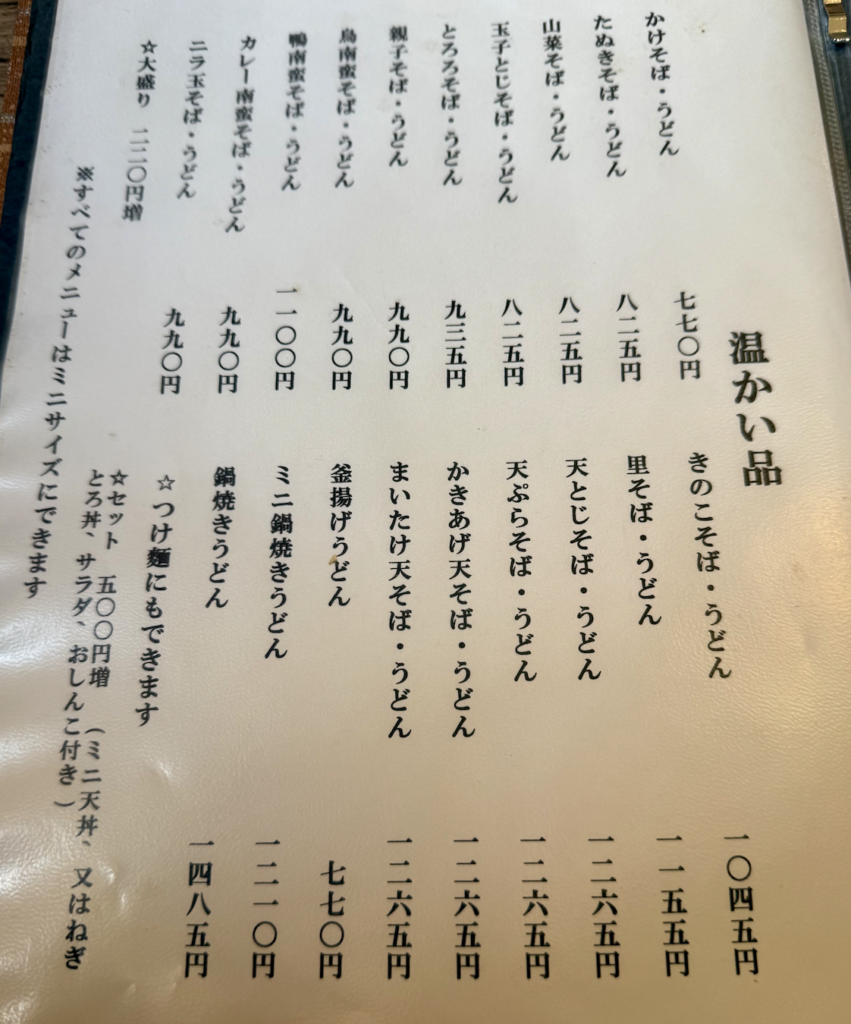 温かい品
かけそば・うどん 七七〇円
たぬきそば・うどん 八二五円
山菜そば・うどん 八二五円
玉子とじそば・うどん 八二五円
とろろそば・うどん 九三五円
親子そば・うどん 九九〇円
鳥南蛮そば・うどん 九九〇円
鴨南蛮そば・うどん 一一〇〇円
カレー南蛮そば・うどん 九九〇円
ニラ玉そば・うどん 九九〇円
☆大盛り 二二〇円増
きのこそば・うどん 一〇四五円
里そば・うどん 一一五五円
天とじそば・うどん 一二六五円
天ぷらそば・うどん 一二六五円
かきあげ天そば・うどん 一二六五円
まいたけ天そば・うどん 一二六五円
釜揚げうどん 七七〇円
ミニ鍋焼きうどん 一二一〇円
鍋焼きうどん 一四八五円
☆つけ麺にもできます
☆セット 五〇〇円増 （ミニ天丼、又はねぎ
とろ丼、サラダ、おしんこ付き）
※すべてのメニューはミニサイズにできます